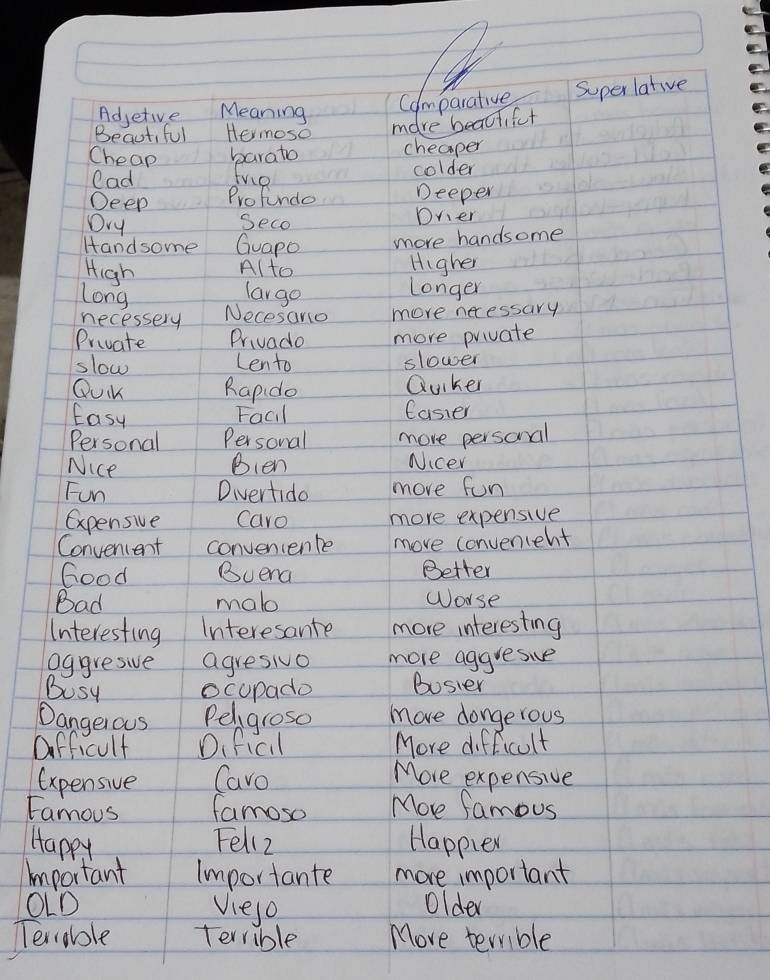 Adjetive Meaning Comparative Superlative
Beautiful Hermoso more beautiful
Cheap barato cheaper
Cad frio colder
Deep Profundo Deeper
Dry Seco Drier
Handsome Guapo more handsome
High Alto Higher
Long largo Longer
necessery Necesario more necessary
Private Privado more private
slow Lento slower
Quik Rapido Quiker
Easy Facil Easier
Personal Personal more personal
Nice Bien Nicer
Fun Divertido more fun
Expensive Caro more expensive
Convenient conveniente more convenient
Good Buena Better
Bad malo Worse
Interesting Interesante more interesting
aggresive agresivo more aggresive
Busy ocupado Busier
Dangerous Peligroso More dongerous
Difficult Dificil More difficult
Expensive Caro More expensive
Famous famoso More famous
Happy Feliz Happier
Important Importante more important
OLD Viejo Older
Terrible Terrible More terrible